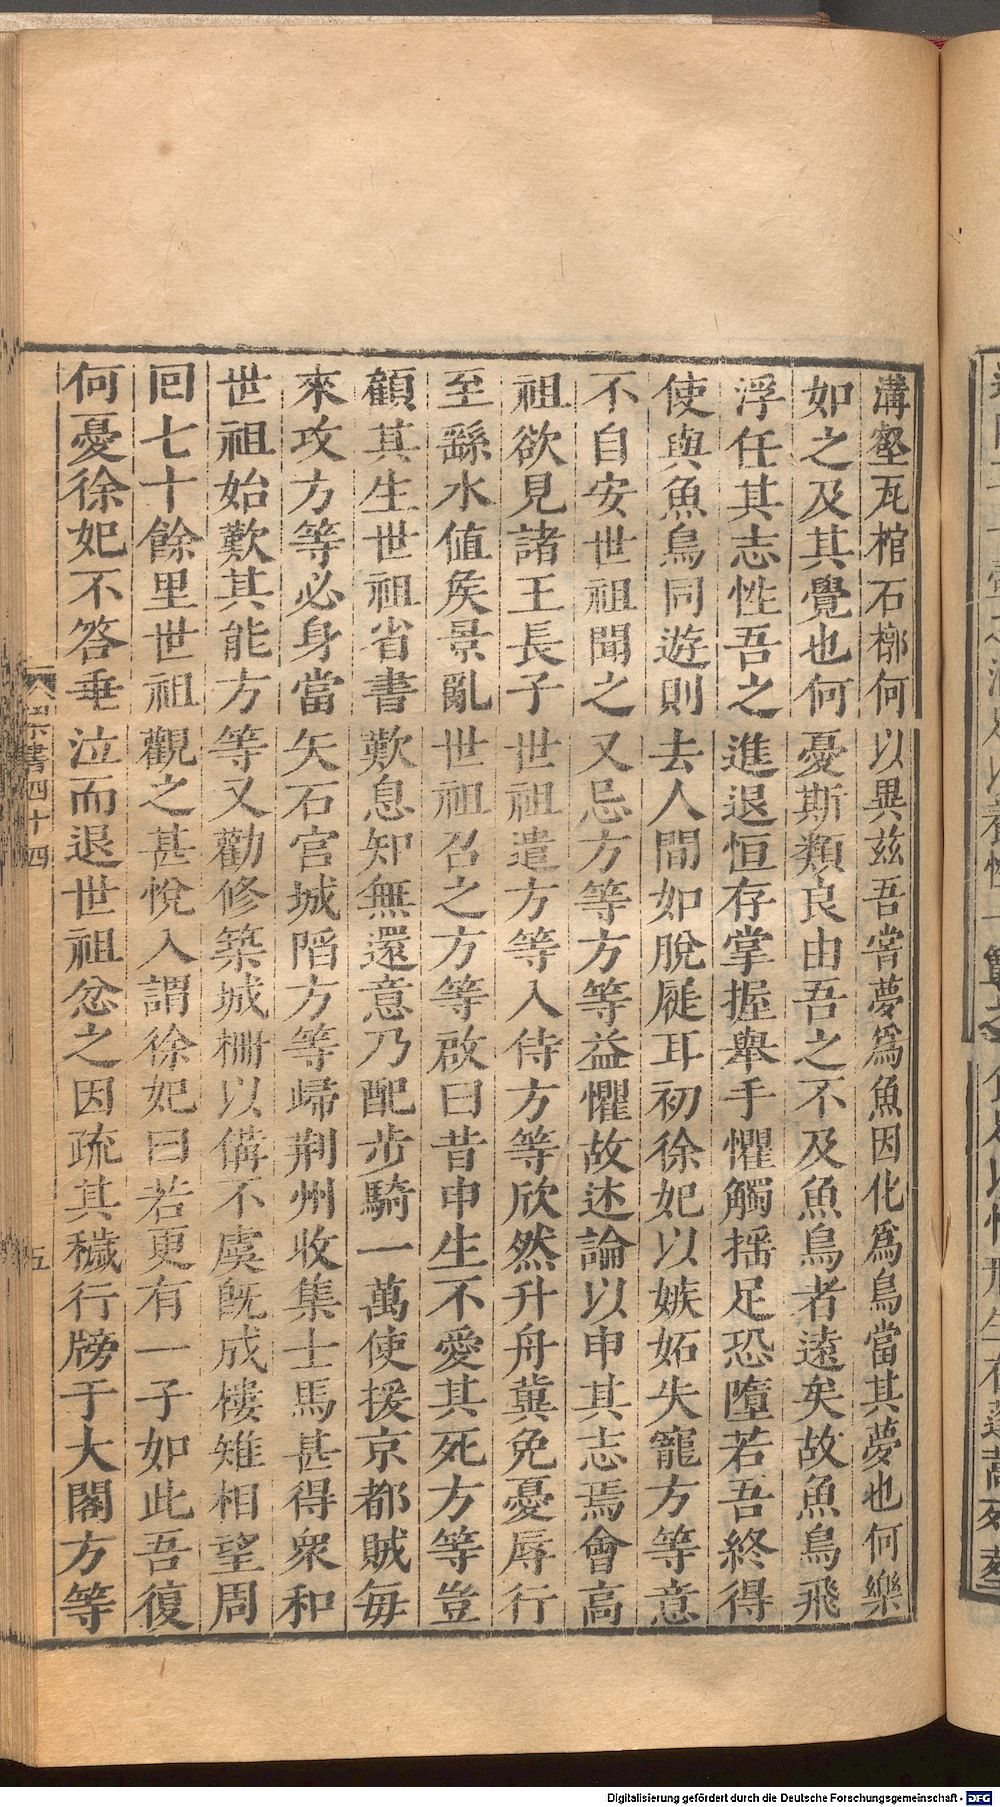 溝壑瓦棺石槨何以異茲吾甞夢爲魚因化爲鳥當其夢也何樂
如之及其覺也何憂斯類良由吾之不及魚鳥者遠矣故魚鳥飛
浮任其志性吾之進退恒存掌握舉手懼觸揺足恐墮若吾終得
使與魚鳥同遊則去人間如脫屣耳初徐妃以嫉妬失寵方等意
不自安世祖聞之又忌方等方等益懼故述論以申其志焉會高
祖欲見諸王長子世祖遣方等入侍方等欣然升舟冀免憂辱行
至繇水值矦景亂世祖召之方等啟曰昔申生不愛其死方等豈
顧其生世祖省書歎息知無還意乃配步騎一萬使援京都賊毎
來攻方等必身當矢石宮城陷方等歸荆州收集士馬甚得衆和
世祖始歎其能方等又勸修築城柵以備不虞旣成樓雉相望周
囘七十餘里世祖觀之甚悅入謂徐妃曰若更有一子如此吾復
何憂徐妃不答垂泣而退世祖忿之因疏其穢行牓于大閣方等
書四十四
五
Digitalisierung gefördert durch die Deutsche Forschungsgemeinschaft - DFG